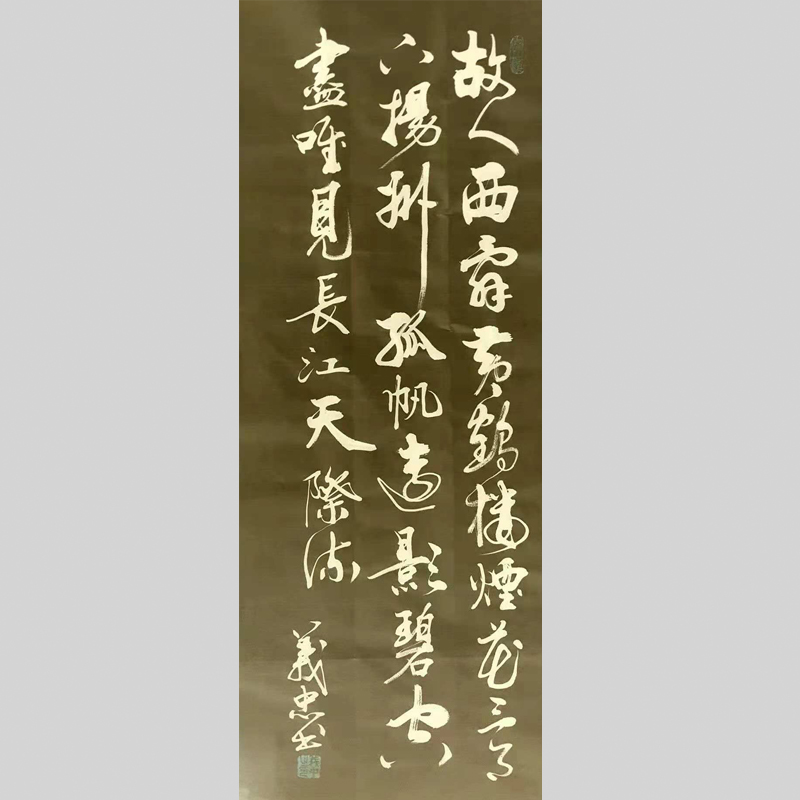 故人西辞黄鶴楼煙花三月
下揚州孤帆遠影碧空
盡唯見長江天際流
義忠書